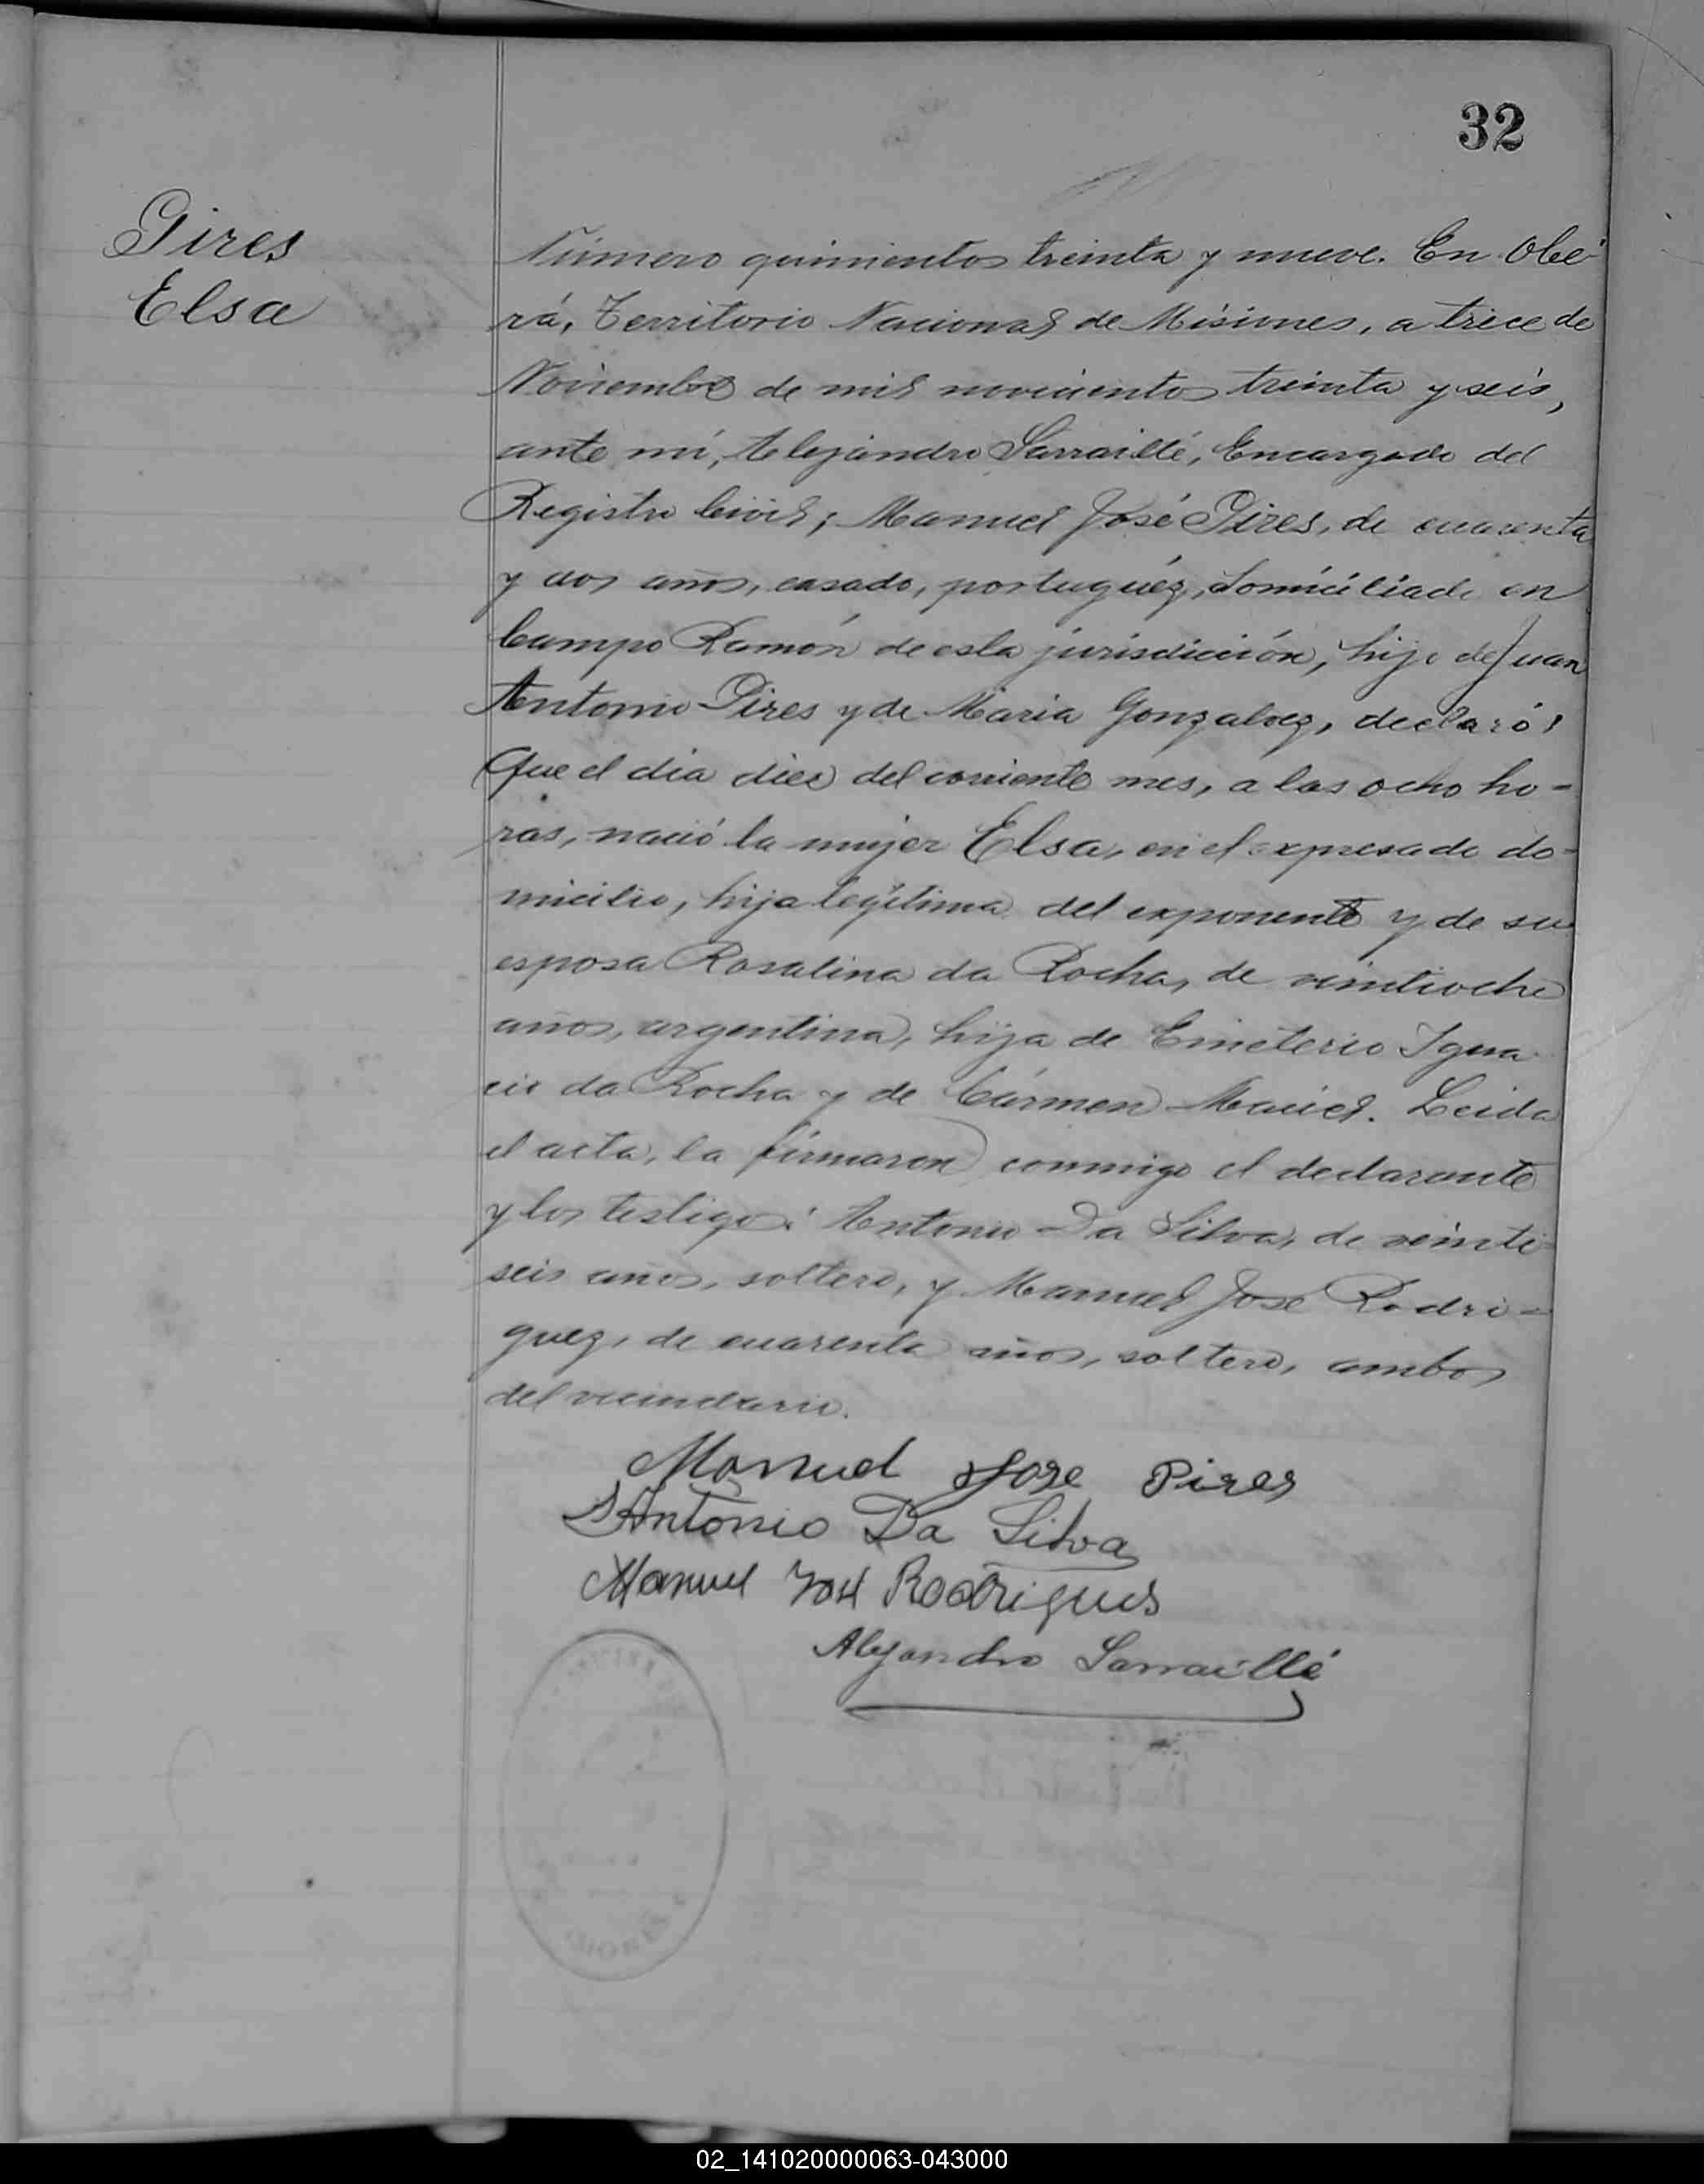 32
Pires
Elsa
Número quinientos treinta y nueve. En Obe-
rá, Territorio Nacional de Misiones, a trece de
Noviembre de mil novecientos treinta y seis,
ante mí, Alejandro Sarraillé, Encargado del
Registro Civil; Manuel José Pires, de cuarenta
y dos años, casado, portuguéz, domiciliado en
Campo Ramón de esta jurisdicción, hijo de Juan
Antonio Pires y de Maria Gonzalvez, declaró:
Que el dia diez del corriente mes, a las ocho ho-
ras, nació la mujer Elsa, en el expresado do-
micilio, hija legítima del exponente y de su
esposa Rosalina da Rocha, de veintiocho
años, argentina, hija de Emeterio Igna-
cio da Rocha y de Cármen Maciel. Leida
el acta, la firmaron conmigo el declarante
y los testigos: Antonio Da Silva, de veinti-
seis años, soltero, y Manuel José Rodri-
guez, de cuarenta años, soltero, ambos
del vecindario.
Manuel Jose Pires
Antonio Da Silva
Manuel José Rodrigues
Alejandro Sarraillé
02_141020000063-043000